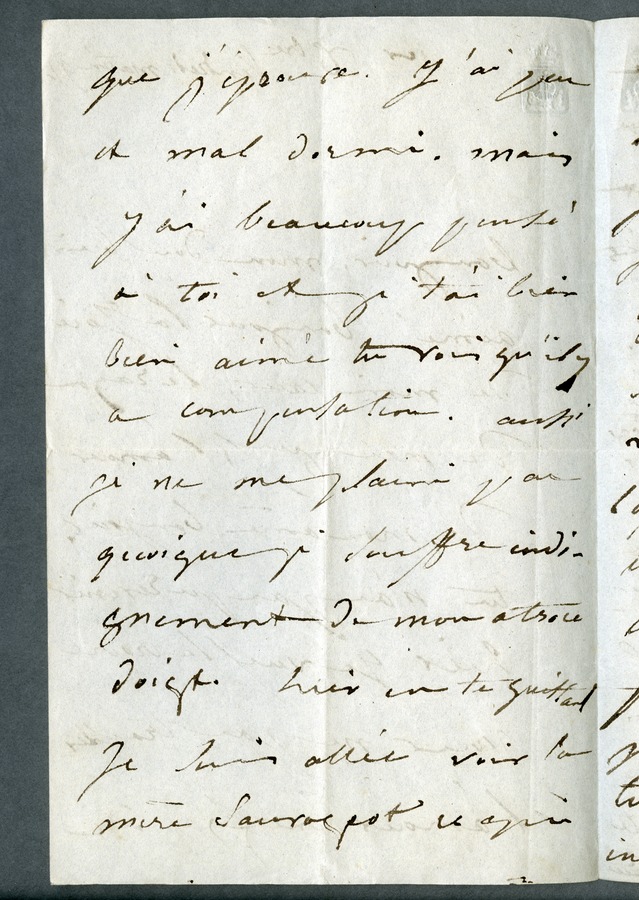 que j'éprouve. J'ai peu
et mal dormi. mais
j'ai beaucoup pensé
à toi et je t'ai bien
bien aimé tu vois qu'il y
a compensation. aussi
je ne me plains pas
quoique je souffre indi-
gnement de mon atroce
doigt. hier en te quittant
je suis allée voir la
mère Sauvageot